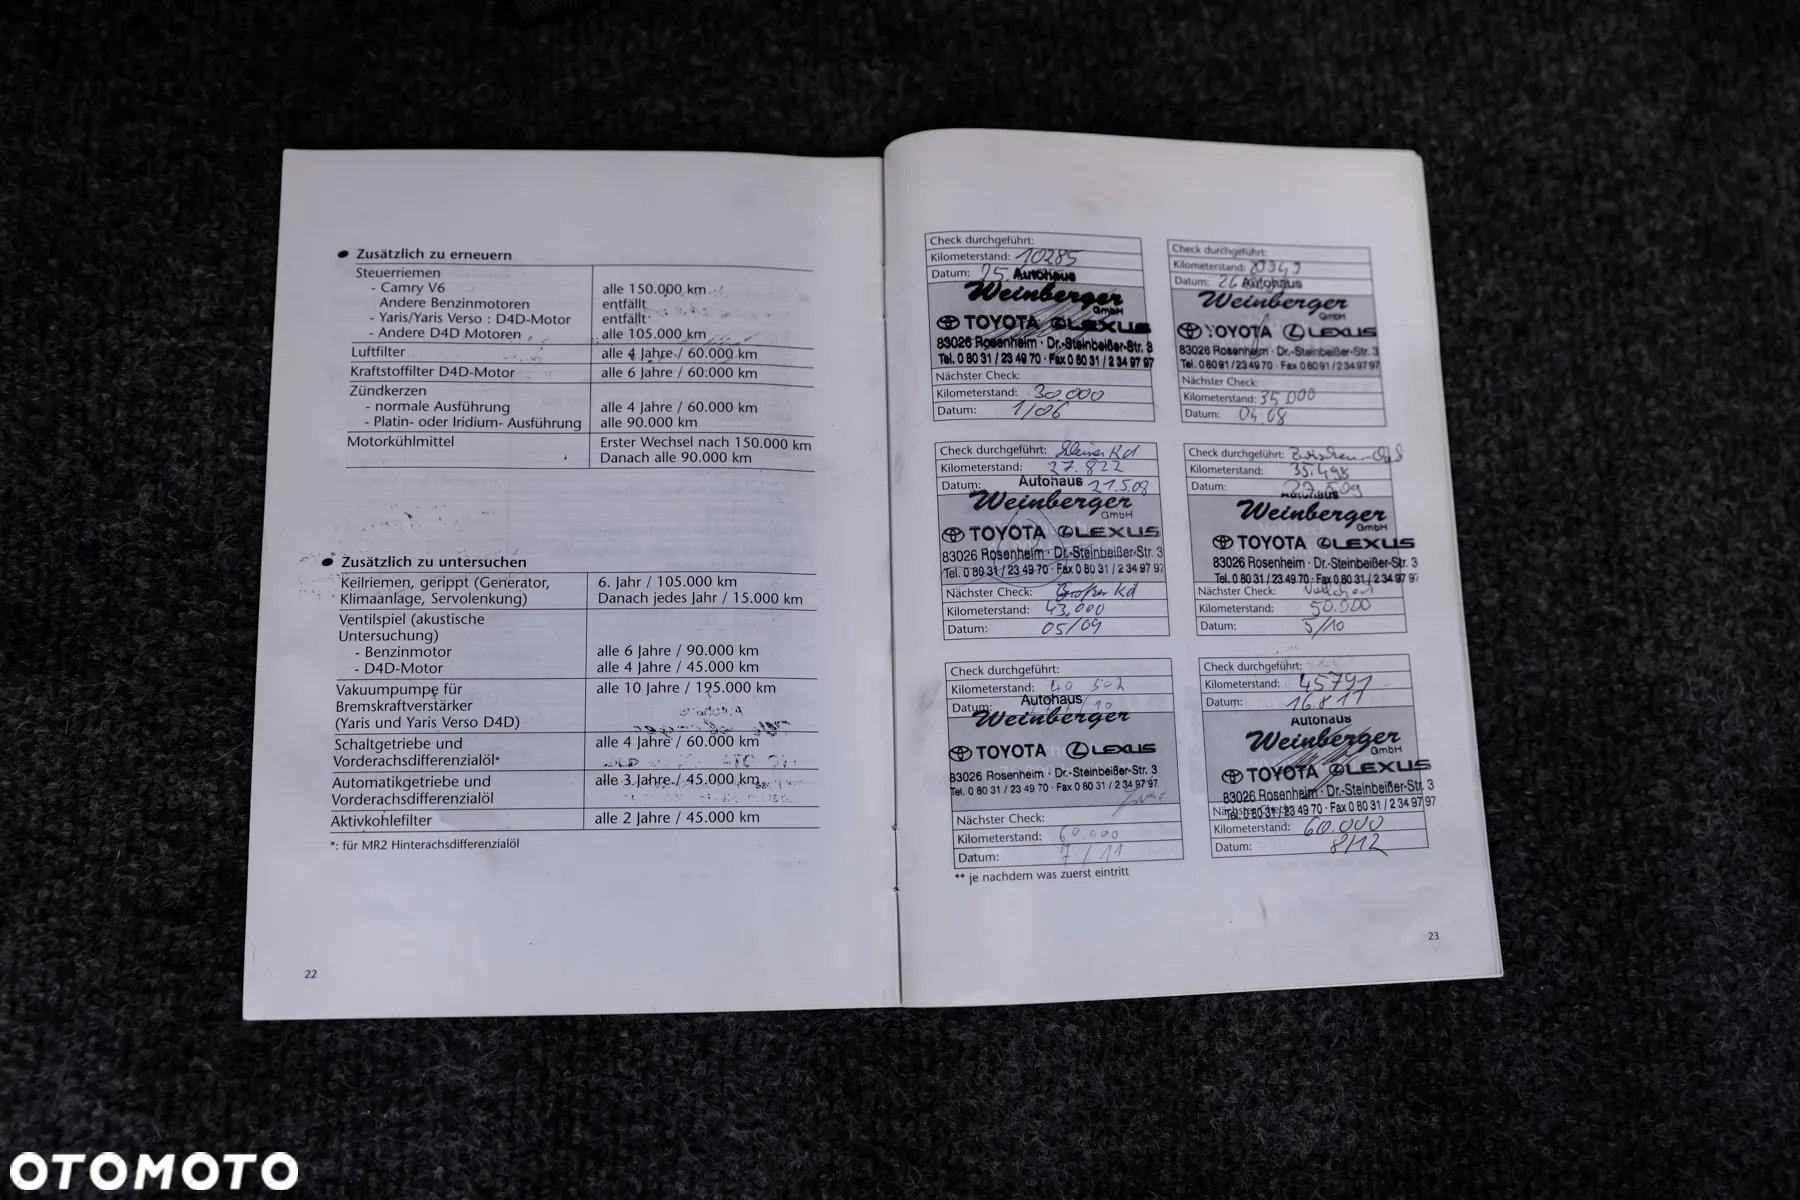 ● Zusätzlich zu erneuern
Steuerriemen
- Camry V6 alle 150.000 km
Andere Benzinmotoren entfällt
- Yaris/Yaris Verso : D4D-Motor entfällt
- Andere D4D Motoren alle 105.000 km
Luftfilter alle 4 Jahre / 60.000 km
Kraftstoffilter D4D-Motor alle 6 Jahre / 60.000 km
Zündkerzen
- normale Ausführung alle 4 Jahre / 60.000 km
- Platin- oder Iridium- Ausführung alle 90.000 km
Motorkühlmittel Erster Wechsel nach 150.000 km
Danach alle 90.000 km
● Zusätzlich zu untersuchen
Keilriemen, gerippt (Generator, 6. Jahr / 105.000 km
Klimaanlage, Servolenkung) Danach jedes Jahr / 15.000 km
Ventilspiel (akustische
Untersuchung)
- Benzinmotor alle 6 Jahre / 90.000 km
- D4D-Motor alle 4 Jahre / 45.000 km
Vakuumpumpe für alle 10 Jahre / 195.000 km
Bremskraftverstärker
(Yaris und Yaris Verso D4D)
Schaltgetriebe und alle 4 Jahre / 60.000 km
Vorderachsdifferenzialöl*
Automatikgetriebe und alle 3 Jahre / 45.000 km
Vorderachsdifferenzialöl
Aktivkohlefilter alle 2 Jahre / 45.000 km
*: für MR2 Hinterachsdifferenzialöl
22
Check durchgeführt:
Kilometerstand: 10285
Datum: 25.
Autohaus
Weinberger
GmbH
TOYOTA LEXUS
83026 Rosenheim · Dr.-Steinbeißer-Str. 3
Tel. 0 80 31 / 23 49 70 · Fax 0 80 31 / 2 34 97 97
Nächster Check:
Kilometerstand: 30.000
Datum: 1/06
Check durchgeführt:
Kilometerstand:
Datum: 26
Autohaus
Weinberger
GmbH
TOYOTA LEXUS
83026 Rosenheim · Dr.-Steinbeißer-Str. 3
Tel. 0 80 31 / 23 49 70 · Fax 0 80 31 / 2 34 97 97
Nächster Check:
Kilometerstand: 35 000
Datum: 04.08
Check durchgeführt: Kd
Kilometerstand: 27.822
Datum: 21.5.08
Autohaus
Weinberger
GmbH
TOYOTA LEXUS
83026 Rosenheim · Dr.-Steinbeißer-Str. 3
Tel. 0 80 31 / 23 49 70 · Fax 0 80 31 / 2 34 97 97
Nächster Check: Großer Kd
Kilometerstand: 43.000
Datum: 05/09
Check durchgeführt:
Kilometerstand: 35.498
Datum:
Autohaus
Weinberger
GmbH
TOYOTA LEXUS
83026 Rosenheim · Dr.-Steinbeißer-Str. 3
Tel. 0 80 31 / 23 49 70 · Fax 0 80 31 / 2 34 97 97
Nächster Check: Vollcheck
Kilometerstand: 50.000
Datum: 5/10
Check durchgeführt:
Kilometerstand: 40 502
Datum: / 10
Autohaus
Weinberger
TOYOTA LEXUS
83026 Rosenheim · Dr.-Steinbeißer-Str. 3
Tel. 0 80 31 / 23 49 70 · Fax 0 80 31 / 2 34 97 97
Nächster Check:
Kilometerstand: 60.000
Datum: 7 / 11
Check durchgeführt:
Kilometerstand: 45791
Datum: 16.8.11
Autohaus
Weinberger
GmbH
TOYOTA LEXUS
83026 Rosenheim · Dr.-Steinbeißer-Str. 3
Tel. 0 80 31 / 23 49 70 · Fax 0 80 31 / 2 34 97 97
Nächster Check:
Kilometerstand: 60.000
Datum: 8/12
** je nachdem was zuerst eintritt
23
OTOMOTO